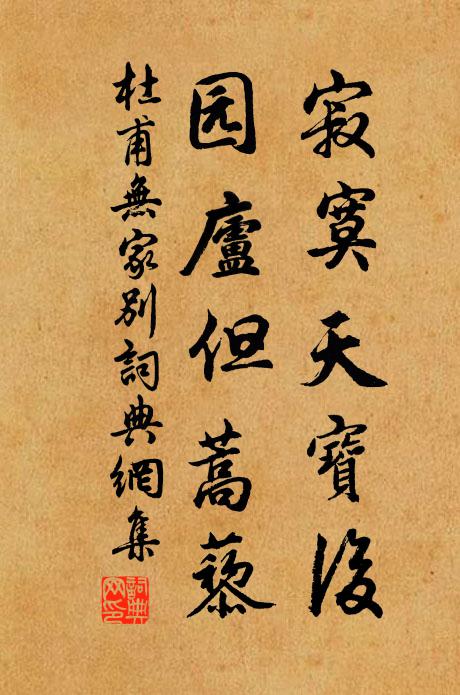 寂寞天寶後
园廬但蒿藜
杜甫無家別詞典網集
詞典网印